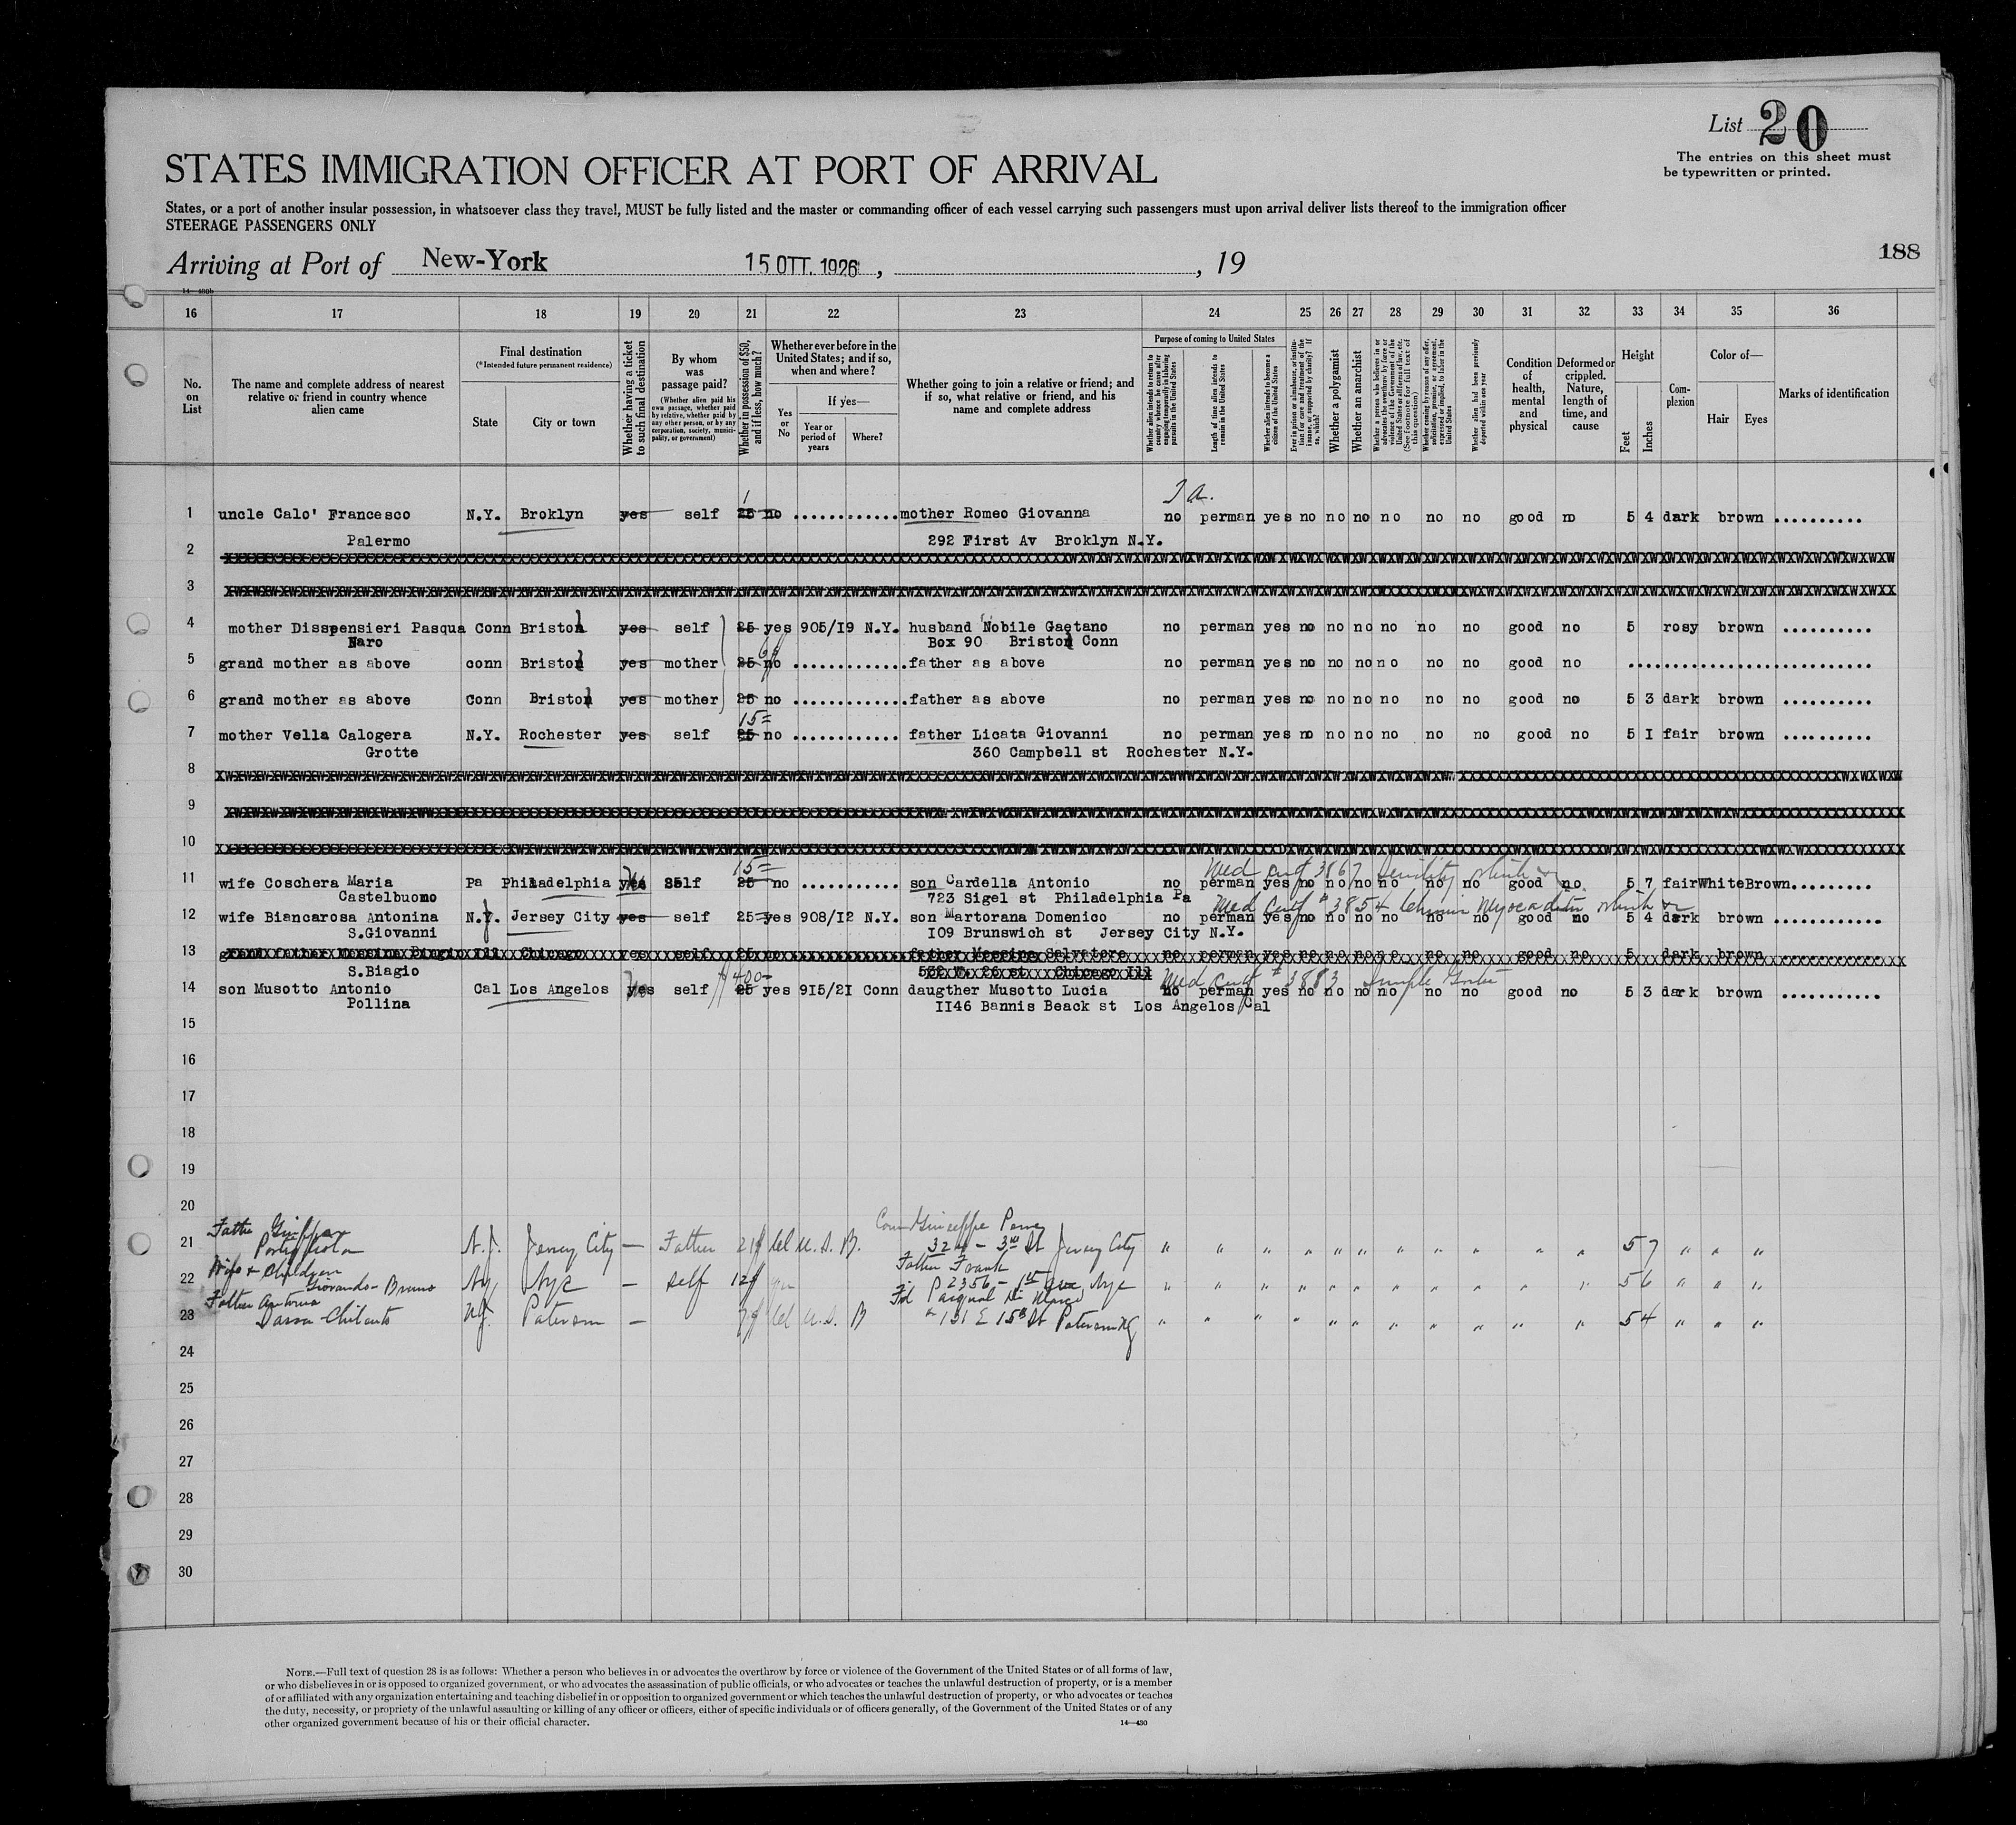 List 20
The entries on this sheet must
be typewritten or printed.
STATES IMMIGRATION OFFICER AT PORT OF ARRIVAL
States, or a port of another insular possession, in whatsoever class they travel, MUST be fully listed and the master or commanding officer of each vessel carrying such passengers must upon arrival deliver lists thereof to the immigration officer
STEERAGE PASSENGERS ONLY
Arriving at Port of New-York 15 OTT. 1926, , 19
188
14—430b
16 17 18 19 20 21 22 23 24 25 26 27 28 29 30 31 32 33 34 35 36
No. on List
The name and complete address of nearest relative or friend in country whence alien came
Final destination
(*Intended future permanent residence)
State
City or town
Whether having a ticket to such final destination
By whom was passage paid?
(Whether alien paid his own passage, whether paid by relative, whether paid by any other person, or by any corporation, society, municipality, or government)
Whether in possession of $50, and if less, how much?
Whether ever before in the United States; and if so, when and where?
Yes or No
If yes—
Year or period of years
Where?
Whether going to join a relative or friend; and if so, what relative or friend, and his name and complete address
Purpose of coming to United States
Whether alien intends to return to country whence he came after engaging temporarily in laboring pursuits in the United States
Length of time alien intends to remain in the United States
Whether alien intends to become a citizen of the United States
Ever in prison or almshouse, or institution for care and treatment of the insane, or supported by charity? If so, which?
Whether a polygamist
Whether an anarchist
Whether a person who believes in or advocates the overthrow by force or violence of the Government of the United States or all forms of law, etc. (See footnote for full text of this question)
Whether coming by reason of any offer, solicitation, promise, or agreement, expressed or implied, to labor in the United States
Whether alien had been previously deported within one year
Condition of health, mental and physical
Deformed or crippled. Nature, length of time, and cause
Height
Feet
Inches
Complexion
Color of—
Hair
Eyes
Marks of identification
1 uncle Calo' Francesco N.Y. Broklyn yes self 25 no ............ mother Romeo Giovanna no perman yes no no no no no no good no 5 4 dark brown ..........
Palermo 292 First Av Broklyn N.Y.
2
3
4 mother Disspensieri Pasqua Conn Bristol yes self 25 yes 905/I9 N.Y. husband Nobile Gaetano no perman yes no no no no no no good no 5 rosy brown ..........
Naro Box 90 Bristol Conn
5 grand mother as above conn Bristol yes mother 25 no ............. father as above no perman yes no no no no no no good no ..........................
6 grand mother as above Conn Bristol yes mother 25 no ............. father as above no perman yes no no no no no no good no 5 3 dark brown ..........
15=
7 mother Vella Calogera N.Y. Rochester yes self 25 no ............ father Licata Giovanni no perman yes no no no no no no good no 5 I fair brown ..........
Grotte 360 Campbell st Rochester N.Y.
8
9
10
15= Med cert 3867 Senility
11 wife Coschera Maria Pa Philadelphia yes self 25 no ........... son Cardella Antonio no perman yes no no no no no no good no 5 7 fair White Brown.........
Castelbuono 723 Sigel st Philadelphia Pa
Med Cert # 3854 Chronic Myocarditis
12 wife Biancarosa Antonina N.J. Jersey City yes self 25 yes 908/I2 N.Y. son Martorana Domenico no perman yes no no no no no no good no 5 4 dark brown ............
S.Giovanni I09 Brunswich st Jersey City N.Y.
13 grand father Messina Biagio Ill Chicago yes self 25 no father Messina Salvatore no perman yes no no no no no no good no 5 dark brown
S.Biagio st Chicago Ill
400= Med Cert # 3883 Simple Goiter
14 son Musotto Antonio Cal Los Angelos yes self 25 yes 915/2I Conn daugther Musotto Lucia no perman yes no no no no no no good no 5 3 dark brown ...........
Pollina II46 Bannis Beack st Los Angelos Cal
15
16
17
18
19
20
Father
21 N.J. Jersey City — Father U.S.B. 324 - 3rd St Jersey City " " " " " " " " " " " 5 7 " " "
Wife & Children Father Frank
22 Giovando - Bruno NY NYC — Self 2356 - 1st Ave NYC " " " " " " " " " " " 5 6 " " "
Father Antonio Pasqual
23 NJ. Paterson — U.S. B 131 E 15th St Paterson NJ " " " " " " " " " " " 5 4 " " "
24
25
26
27
28
29
30
NOTE.—Full text of question 28 is as follows: Whether a person who believes in or advocates the overthrow by force or violence of the Government of the United States or of all forms of law,
or who disbelieves in or is opposed to organized government, or who advocates the assassination of public officials, or who advocates or teaches the unlawful destruction of property, or is a member
of or affiliated with any organization entertaining and teaching disbelief in or opposition to organized government or which teaches the unlawful destruction of property, or who advocates or teaches
the duty, necessity, or propriety of the unlawful assaulting or killing of any officer or officers, either of specific individuals or of officers generally, of the Government of the United States or of any
other organized government because of his or their official character.
14—430